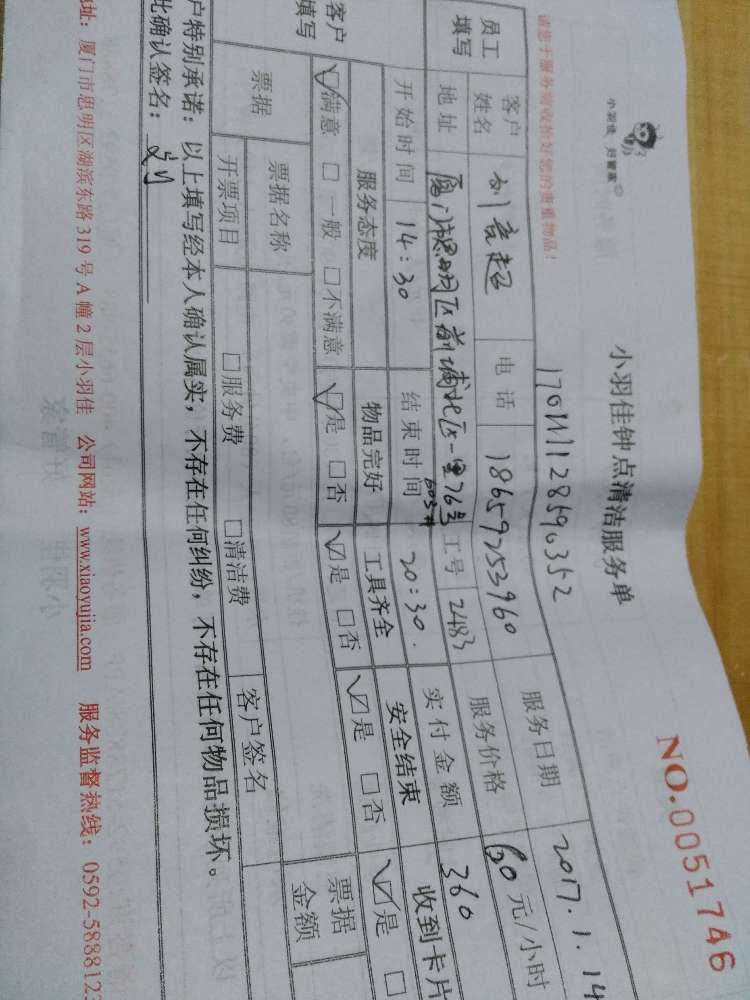 小羽佳 好管家
小羽佳钟点清洁服务单
NO.0051746
请您于服务前收拾好您的贵重物品!
服务日期 2017.1.14
员工填写
客户姓名 电话 18659253960 服务价格 60 元/小时
地址 工号 2483 实付金额 360
开始时间 14:30 结束时间 20:30
客户填写
服务态度 物品完好 工具齐全 安全结束 收到卡片
☑满意 □一般 □不满意 ☑是 □否 ☑是 □否 ☑是 □否 ☑是 □
票据 票据名称 □服务费 □清洁费 客户签名 票据金额
开票项目
户特别承诺:以上填写经本人确认属实,不存在任何纠纷,不存在任何物品损坏。
此确认签名:
址:厦门市思明区湖滨东路 319 号 A 幢 2 层小羽佳 公司网站:www.xiaoyujia.com 服务监督热线:0592-5888123